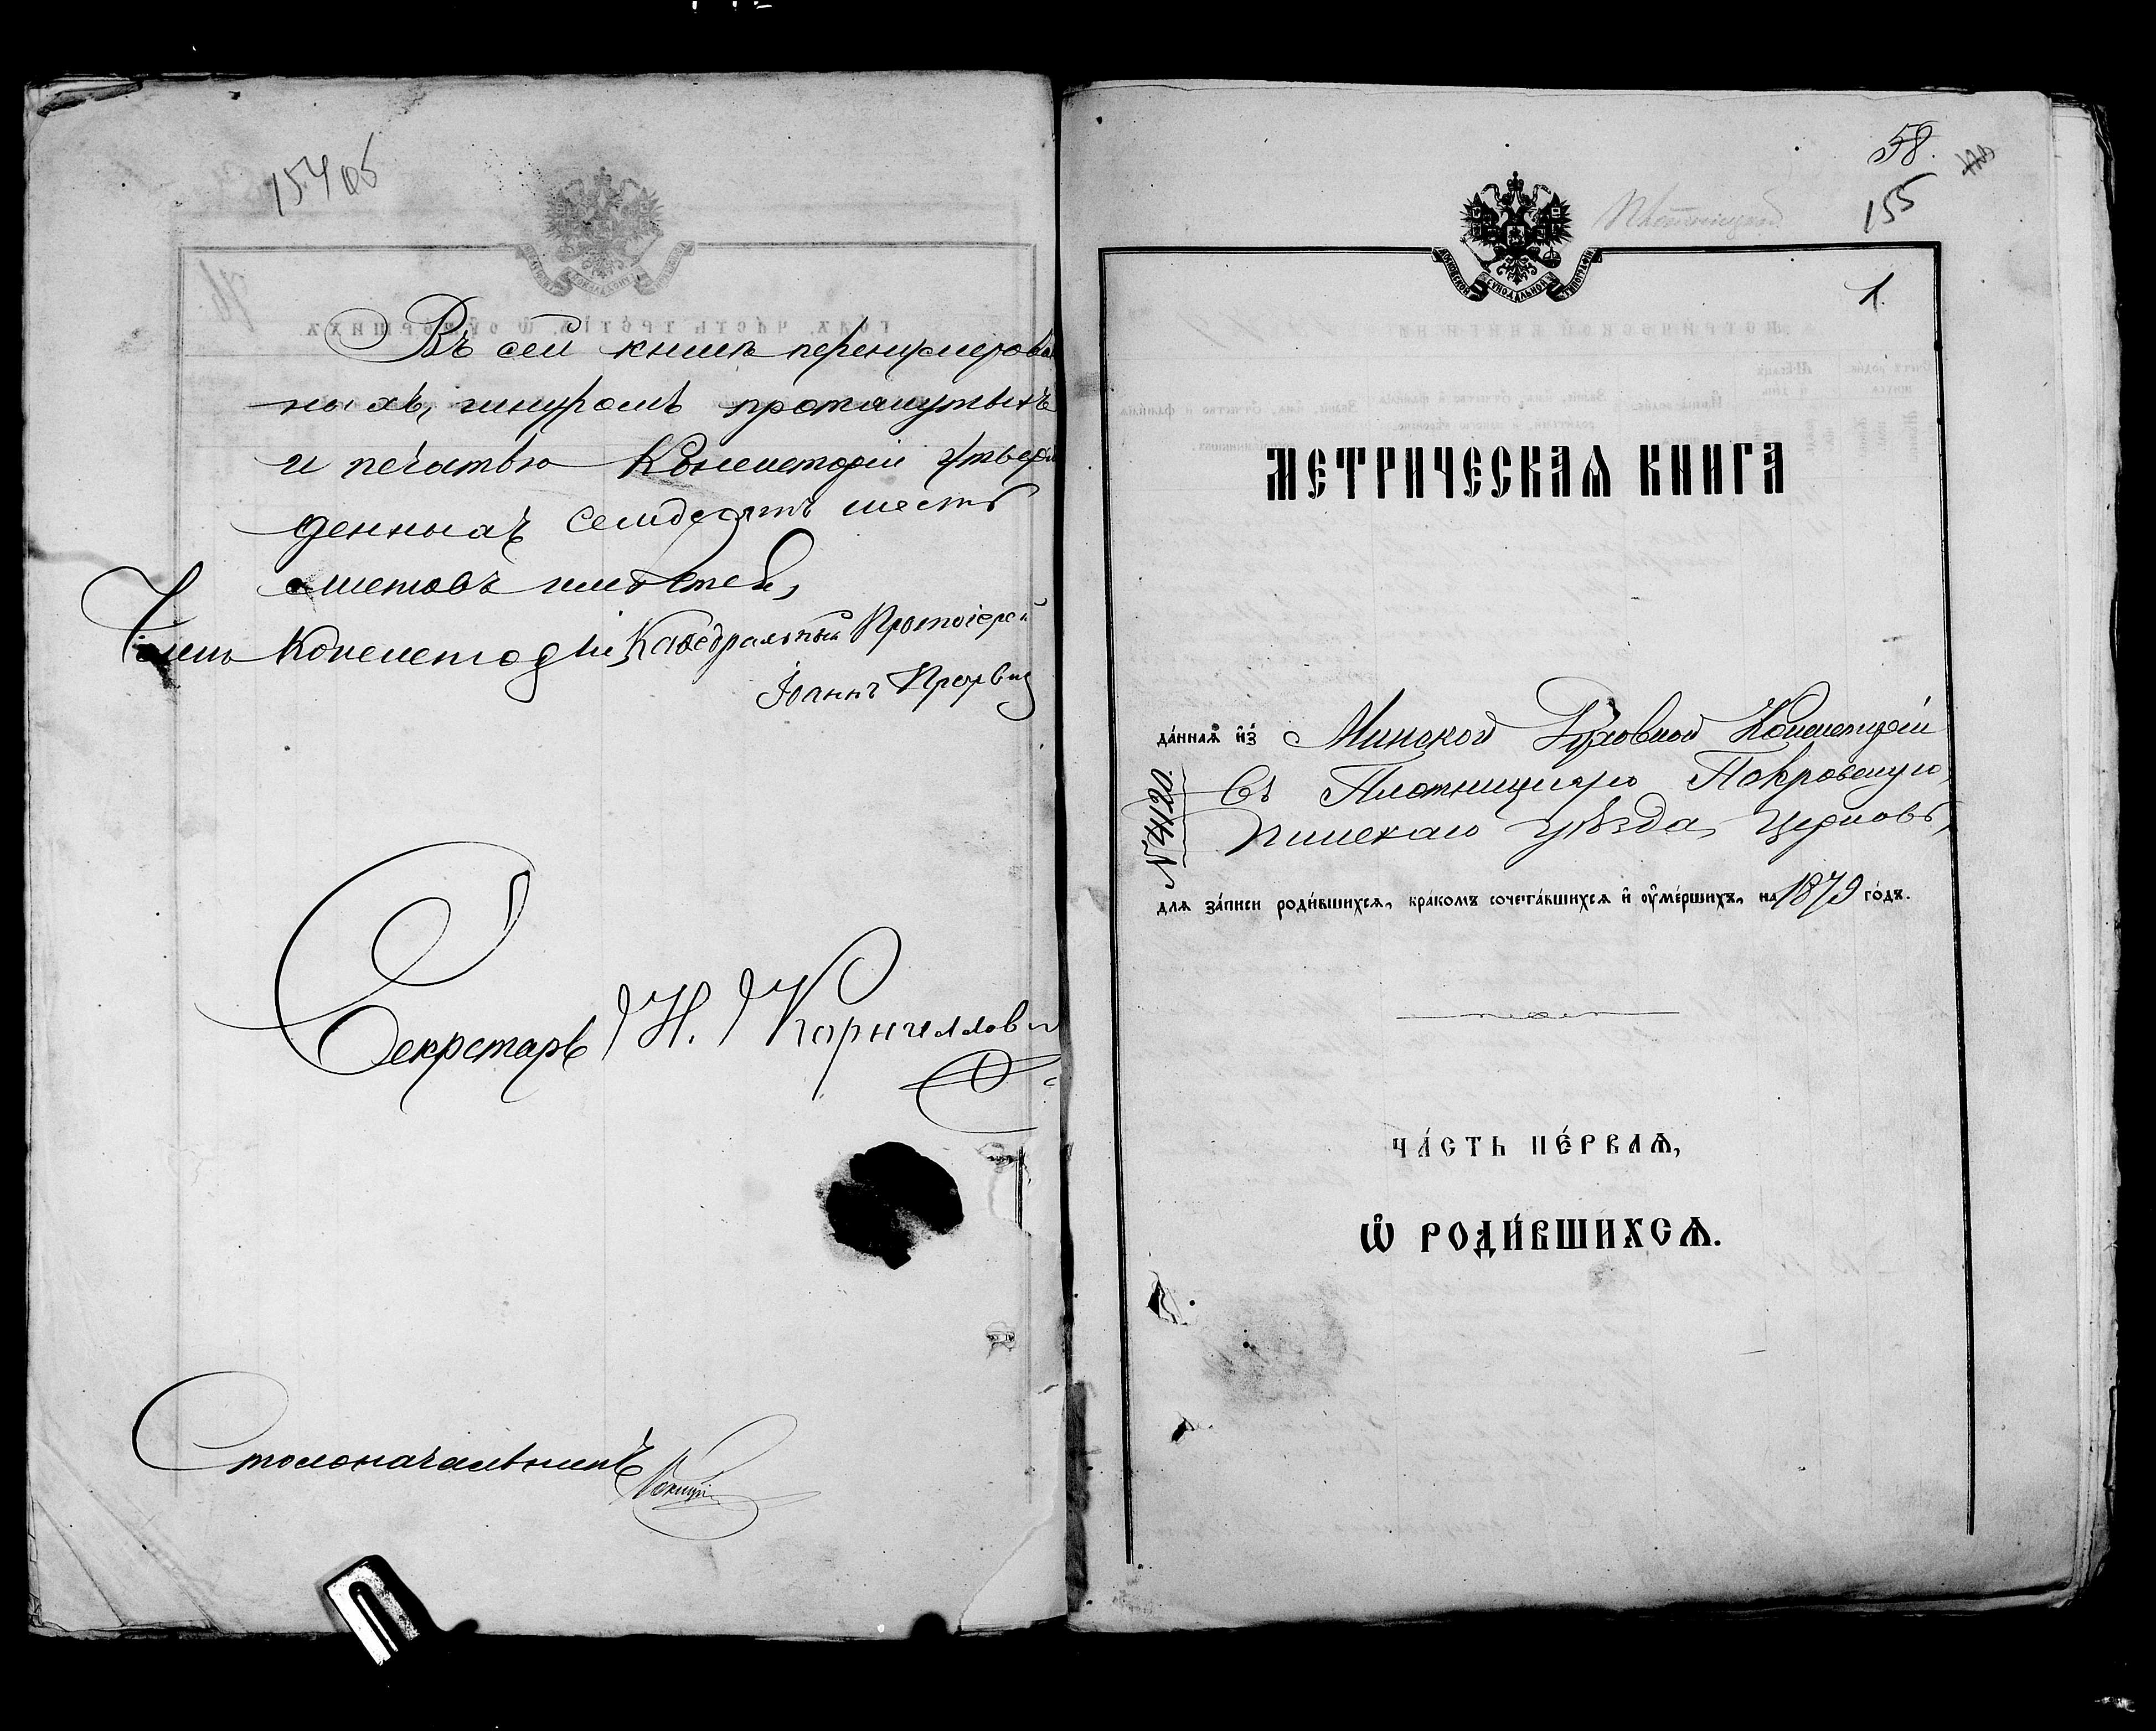 154 об
Въ сей книгѣ перенумерова
ныхъ, шнуромъ протянутыхъ
и печатью Консисторіи утверж
денныхъ семдесятъ шесть
листовъ имѣетъ,
Членъ Консисторіи, Каѳедральный Протоіерей
Іоаннъ Прорвич
Секретарь Н. Корнилови
Столоначальникъ
58.
155
1.
МОСКОВСКОЙ СУНОДАЛЬНОЙ ТИПОГРАФІИ
МЕТРИЧЕСКАѦ КНИГА
да́ннаѧ и҆з̾ Минской Духовной Консисторіи
въ Плотницкую Покровскую,
Пинскаго уѣзда, Церковь,
№ 4120.
длѧ за́писи роди́вшихсѧ, бра́комъ сочета́вшихсѧ и҆ ᲂу҆ме́ршихъ, на 1879 го́дъ.
ЧА́СТЬ ПЕ́РВАѦ,
Ѡ҆ РОДИ́ВШИХСѦ.